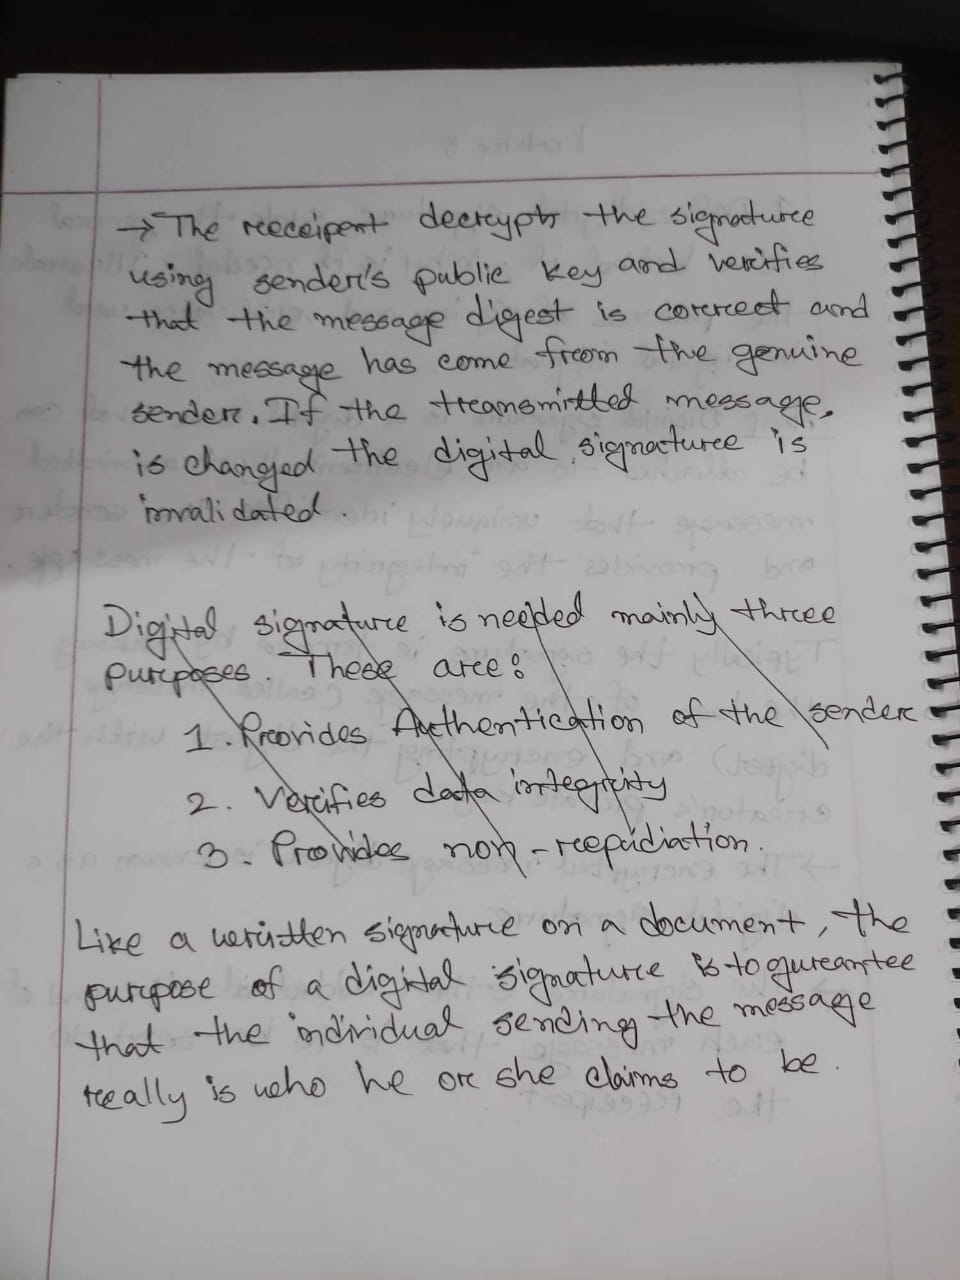 → The receipent decrypts the signature
using sender's public key and verifies
that the message digest is correct and
the message has come from the genuine
sender. If the transmitted message,
is changed the digital signature is
invalidated.
Digital signature is needed mainly three
purposes. These are:
1. Provides Authentication of the sender
2. Verifies data integrity
3. Provides non-repudiation.
Like a written signature on a document, the
purpose of a digital signature is to gureantee
that the individual sending the message
really is who he or she claims to be.